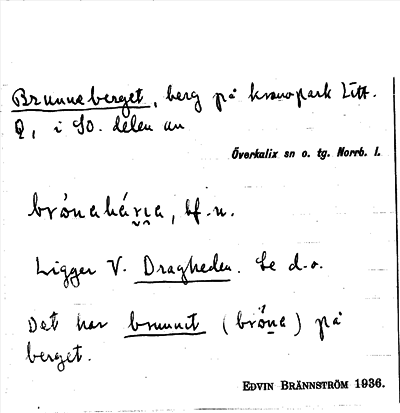 Brunneberget, berg på kronopark Litt.
Q, i SO. delen av
Överkalix sn o. tg. Norrb. l.
brǿnahárɪa, bf. n.
Ligger V. Dragheden. Se d. o.
Det har brunnit (brǿna) på
berget.
EDVIN BRÄNNSTRÖM 1936.